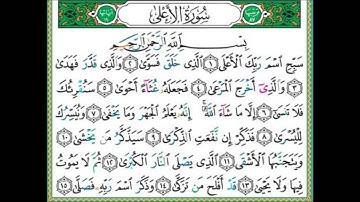 سُورَةُ الأَعْلَى
بِسْمِ اللَّهِ الرَّحْمَنِ الرَّحِيمِ
سَبِّحِ اسْمَ رَبِّكَ الْأَعْلَى ١ الَّذِي خَلَقَ فَسَوَّى ٢ وَالَّذِي قَدَّرَ فَهَدَى
٣ وَالَّذِي أَخْرَجَ الْمَرْعَى ٤ فَجَعَلَهُ غُثَاءً أَحْوَى ٥ سَنُقْرِئُكَ
فَلَا تَنْسَى ٦ إِلَّا مَا شَاءَ اللَّهُ إِنَّهُ يَعْلَمُ الْجَهْرَ وَمَا يَخْفَى ٧ وَنُيَسِّرُكَ
لِلْيُسْرَى ٨ فَذَكِّرْ إِنْ نَفَعَتِ الذِّكْرَى ٩ سَيَذَّكَّرُ مَنْ يَخْشَى ١٠
وَيَتَجَنَّبُهَا الْأَشْقَى ١١ الَّذِي يَصْلَى النَّارَ الْكُبْرَى ١٢ ثُمَّ لَا يَمُوتُ
فِيهَا وَلَا يَحْيَى ١٣ قَدْ أَفْلَحَ مَنْ تَزَكَّى ١٤ وَذَكَرَ اسْمَ رَبِّهِ فَصَلَّى ١٥